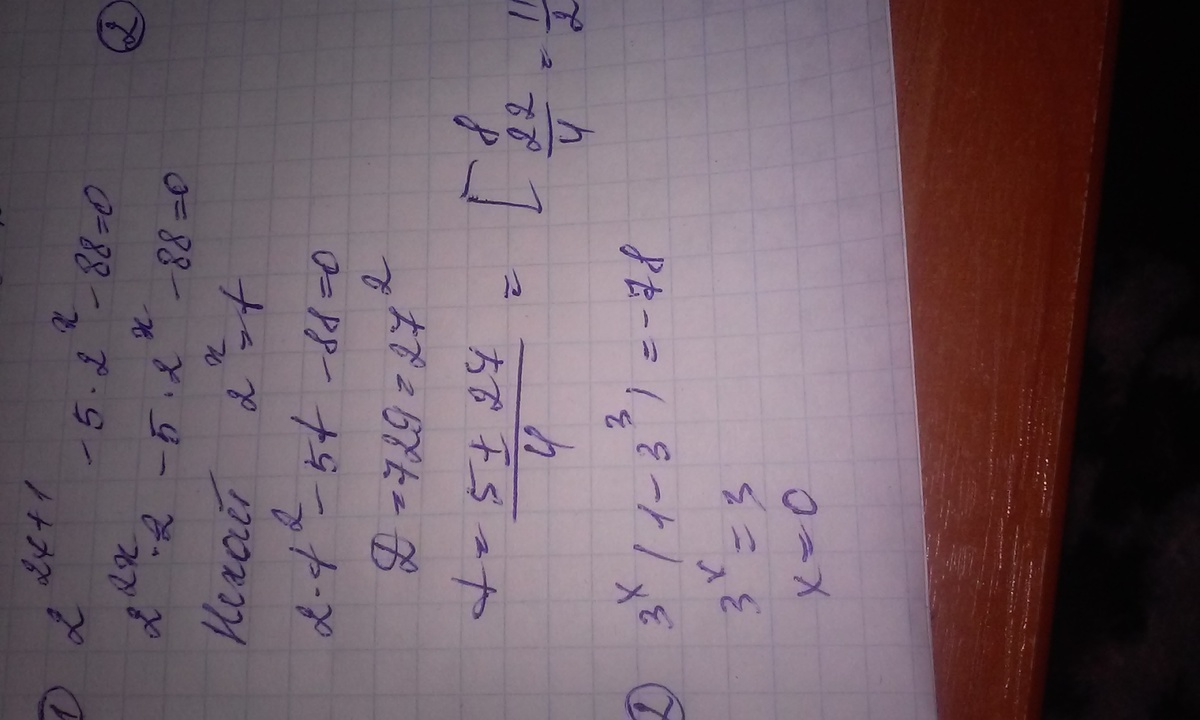 ①
2^{2x+1} - 5 · 2^x - 88 = 0
2^{2x} · 2 - 5 · 2^x - 88 = 0
Нехай 2^x = t
2 · t^2 - 5t - 88 = 0
D = 729 = 27^2
t = \frac{5 ± 27}{4} = [ 8
\frac{22}{4} = \frac{11}{2}
②
3^x (1 - 3^3) = -78
3^x = 3
x = 0
②